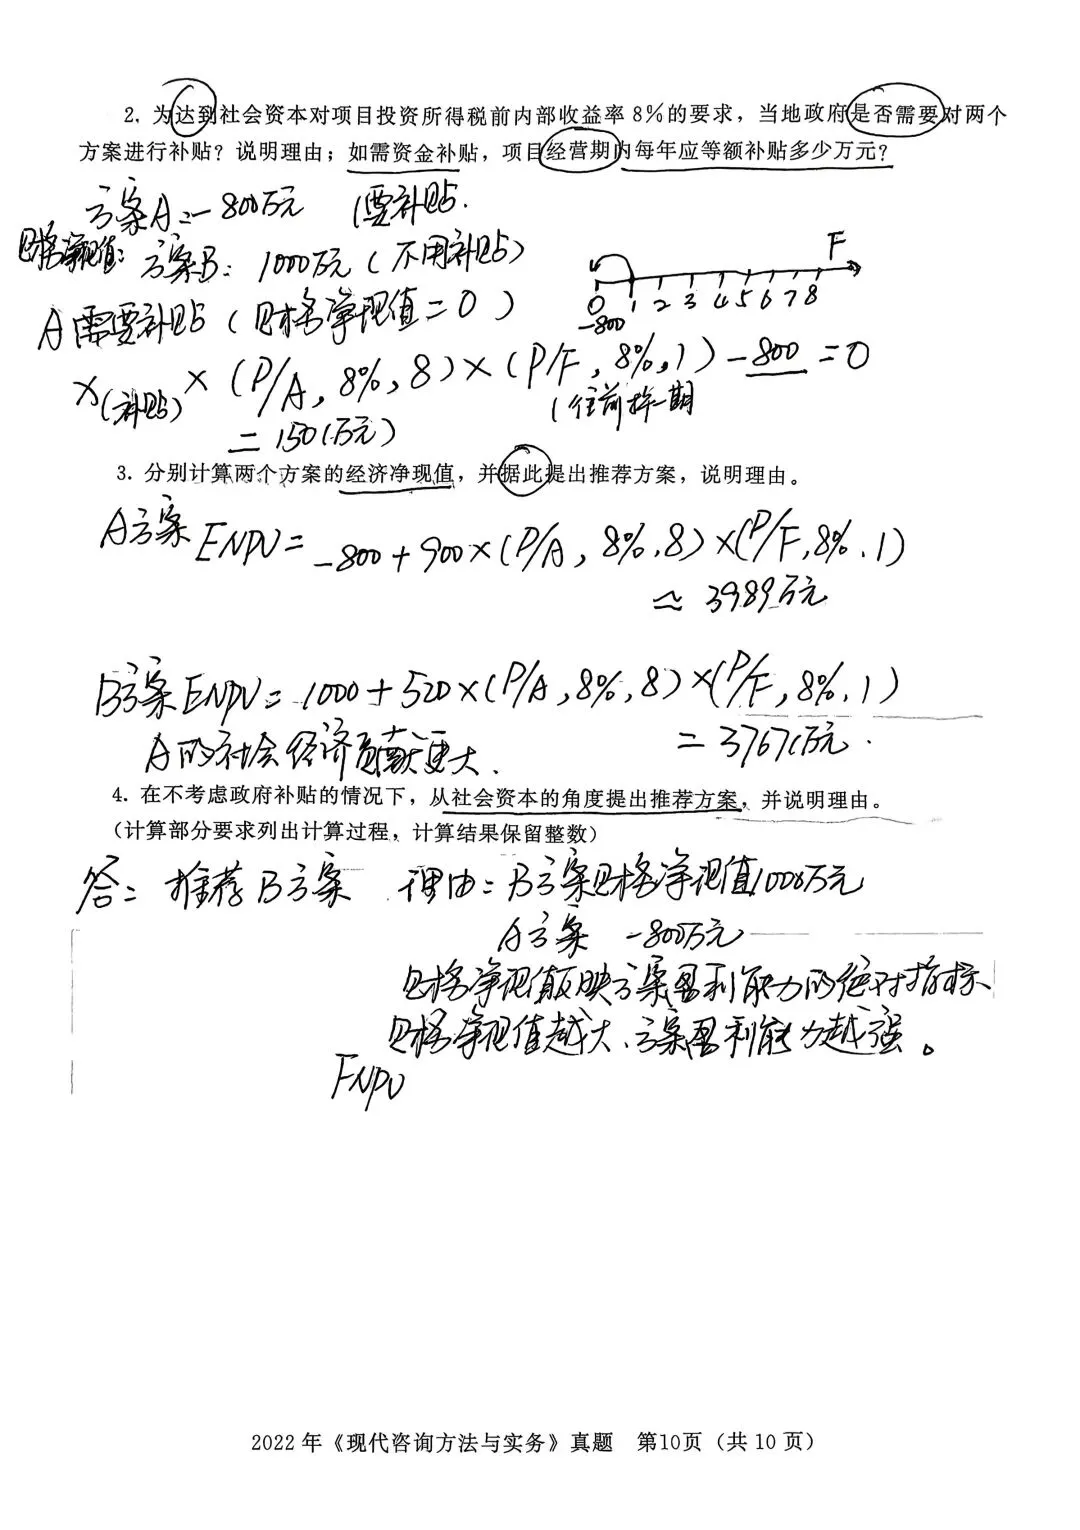 2. 为达到社会资本对项目投资所得税前内部收益率 8%的要求，当地政府是否需要对两个
方案进行补贴？说明理由；如需资金补贴，项目经营期内每年应等额补贴多少万元？
方案A=-800万元 （要补贴.
财务净现值：方案B：1000万元（不用补贴）
F
0 1 2 3 4 5 6 7 8
-800
A需要补贴（财务净现值=0）
X(补贴)×(P/A, 8%, 8)×(P/F, 8%, 1)-800=0
（往前折一期
=150(万元)
3. 分别计算两个方案的经济净现值，并据此提出推荐方案，说明理由。
A方案 ENPV=-800+900×(P/A, 8%.8)×(P/F,8%.1)
≈3989万元
B方案ENPV=1000+520×(P/A,8%,8)×(P/F,8%,1)
=3767(万元.
A的社会经济贡献更大.
4. 在不考虑政府补贴的情况下，从社会资本的角度提出推荐方案，并说明理由。
（计算部分要求列出计算过程，计算结果保留整数）
答：推荐B方案 理由：B方案财务净现值1000万元
A方案 -800万元
财务净现值反映方案盈利能力的绝对指标、
财务净现值越大、方案盈利能力越强。
FNPV
2022 年《现代咨询方法与实务》真题 第10页（共 10 页）